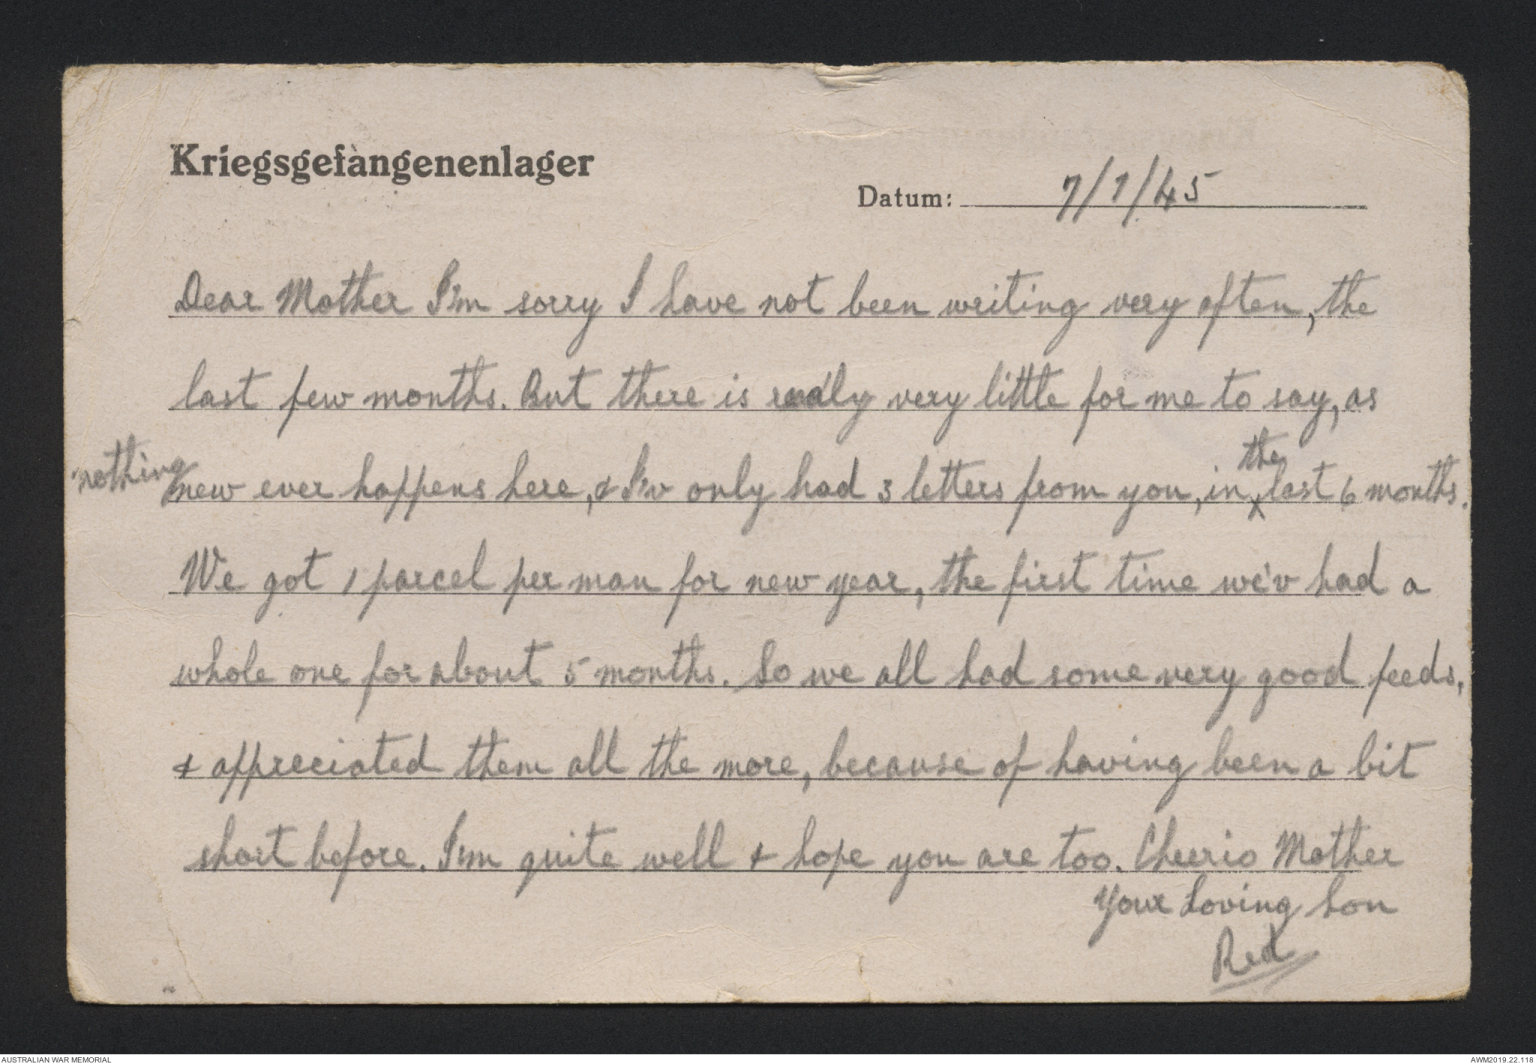 Kriegsgefangenenlager
Datum: 7/1/45
Dear Mother I'm sorry I have not been writing very often, the
last few months. But there is really very little for me to say, as
nothing new ever happens here, & I'v only had 3 letters from you, in the last 6 months.
We got 1 parcel per man for new year, the first time we'v had a
whole one for about 5 months. So we all had some very good feeds,
& appreciated them all the more, because of having been a bit
short before. I'm quite well & hope you are too. Cheerio Mother
Your Loving Son
Red
AUSTRALIAN WAR MEMORIAL
AWM2019.22.118